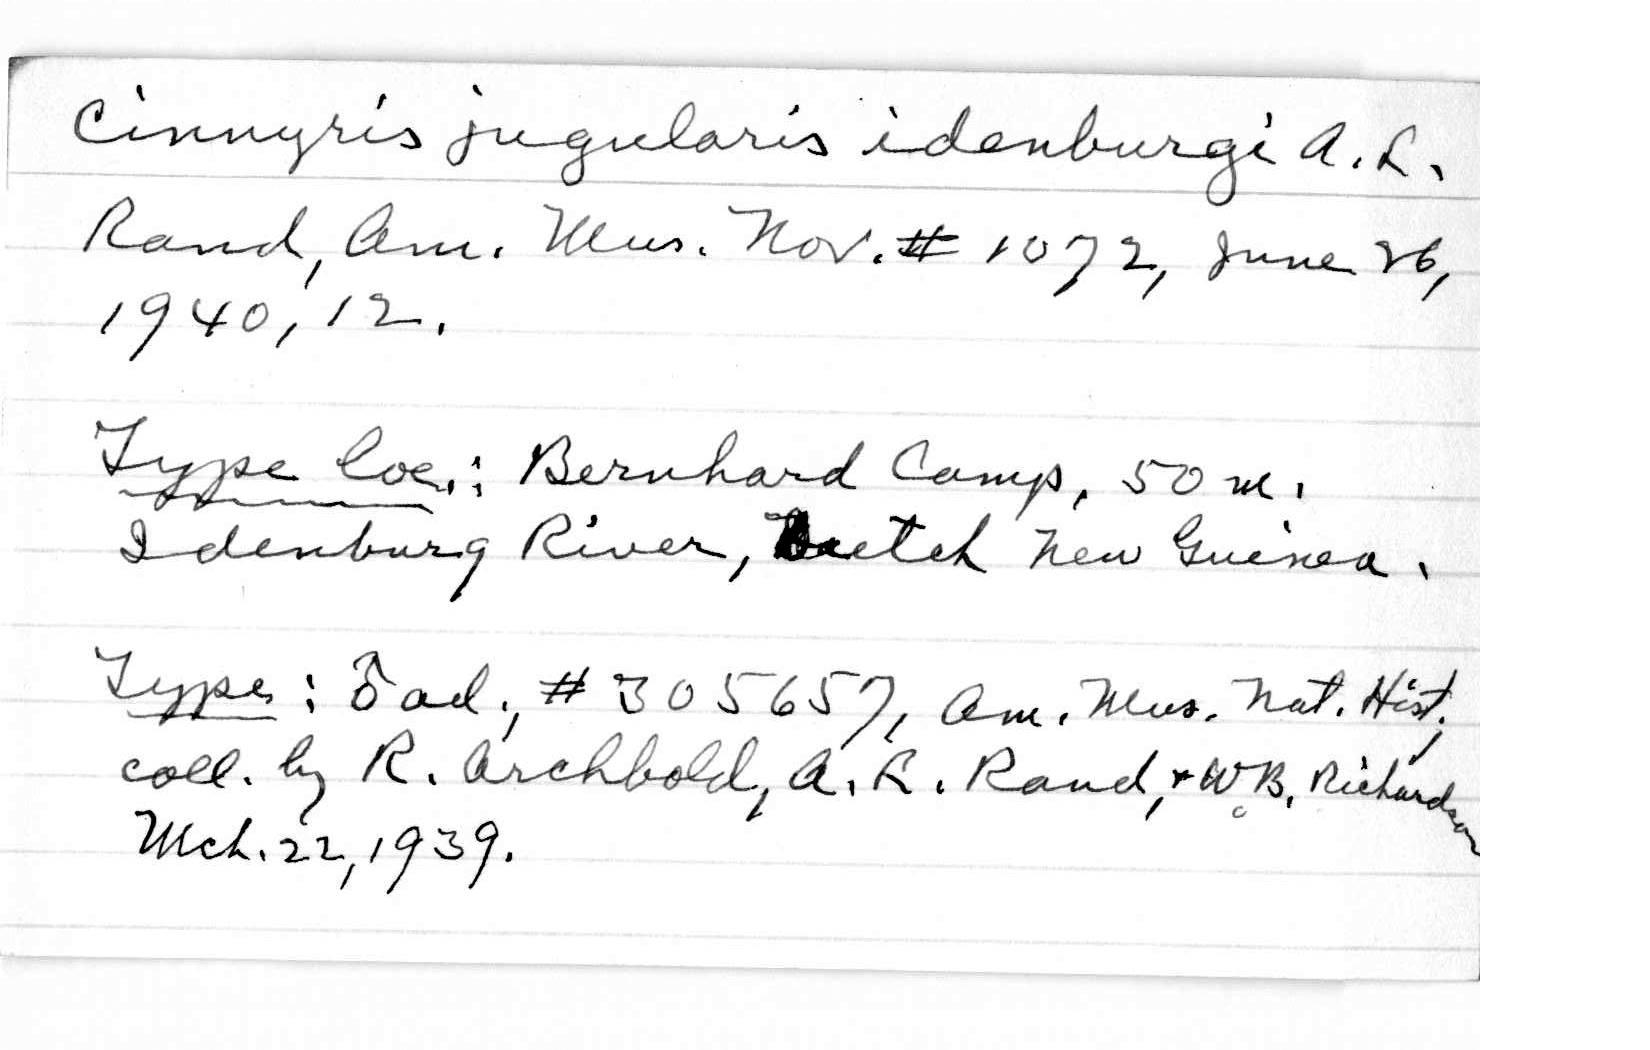 Cinnyris jugularis idenburgi A. L.
Rand, Am. Mus. Nov. # 1072, June 26,
1940, 12.
Type loc.: Bernhard Camp, 50 m.
Idenburg River, Dutch New Guinea.
Type: ♂ ad., # 305657, Am. Mus. Nat. Hist.,
coll. by R. Archbold, A. L. Rand, + W.B. Richardson
Mch. 22, 1939.